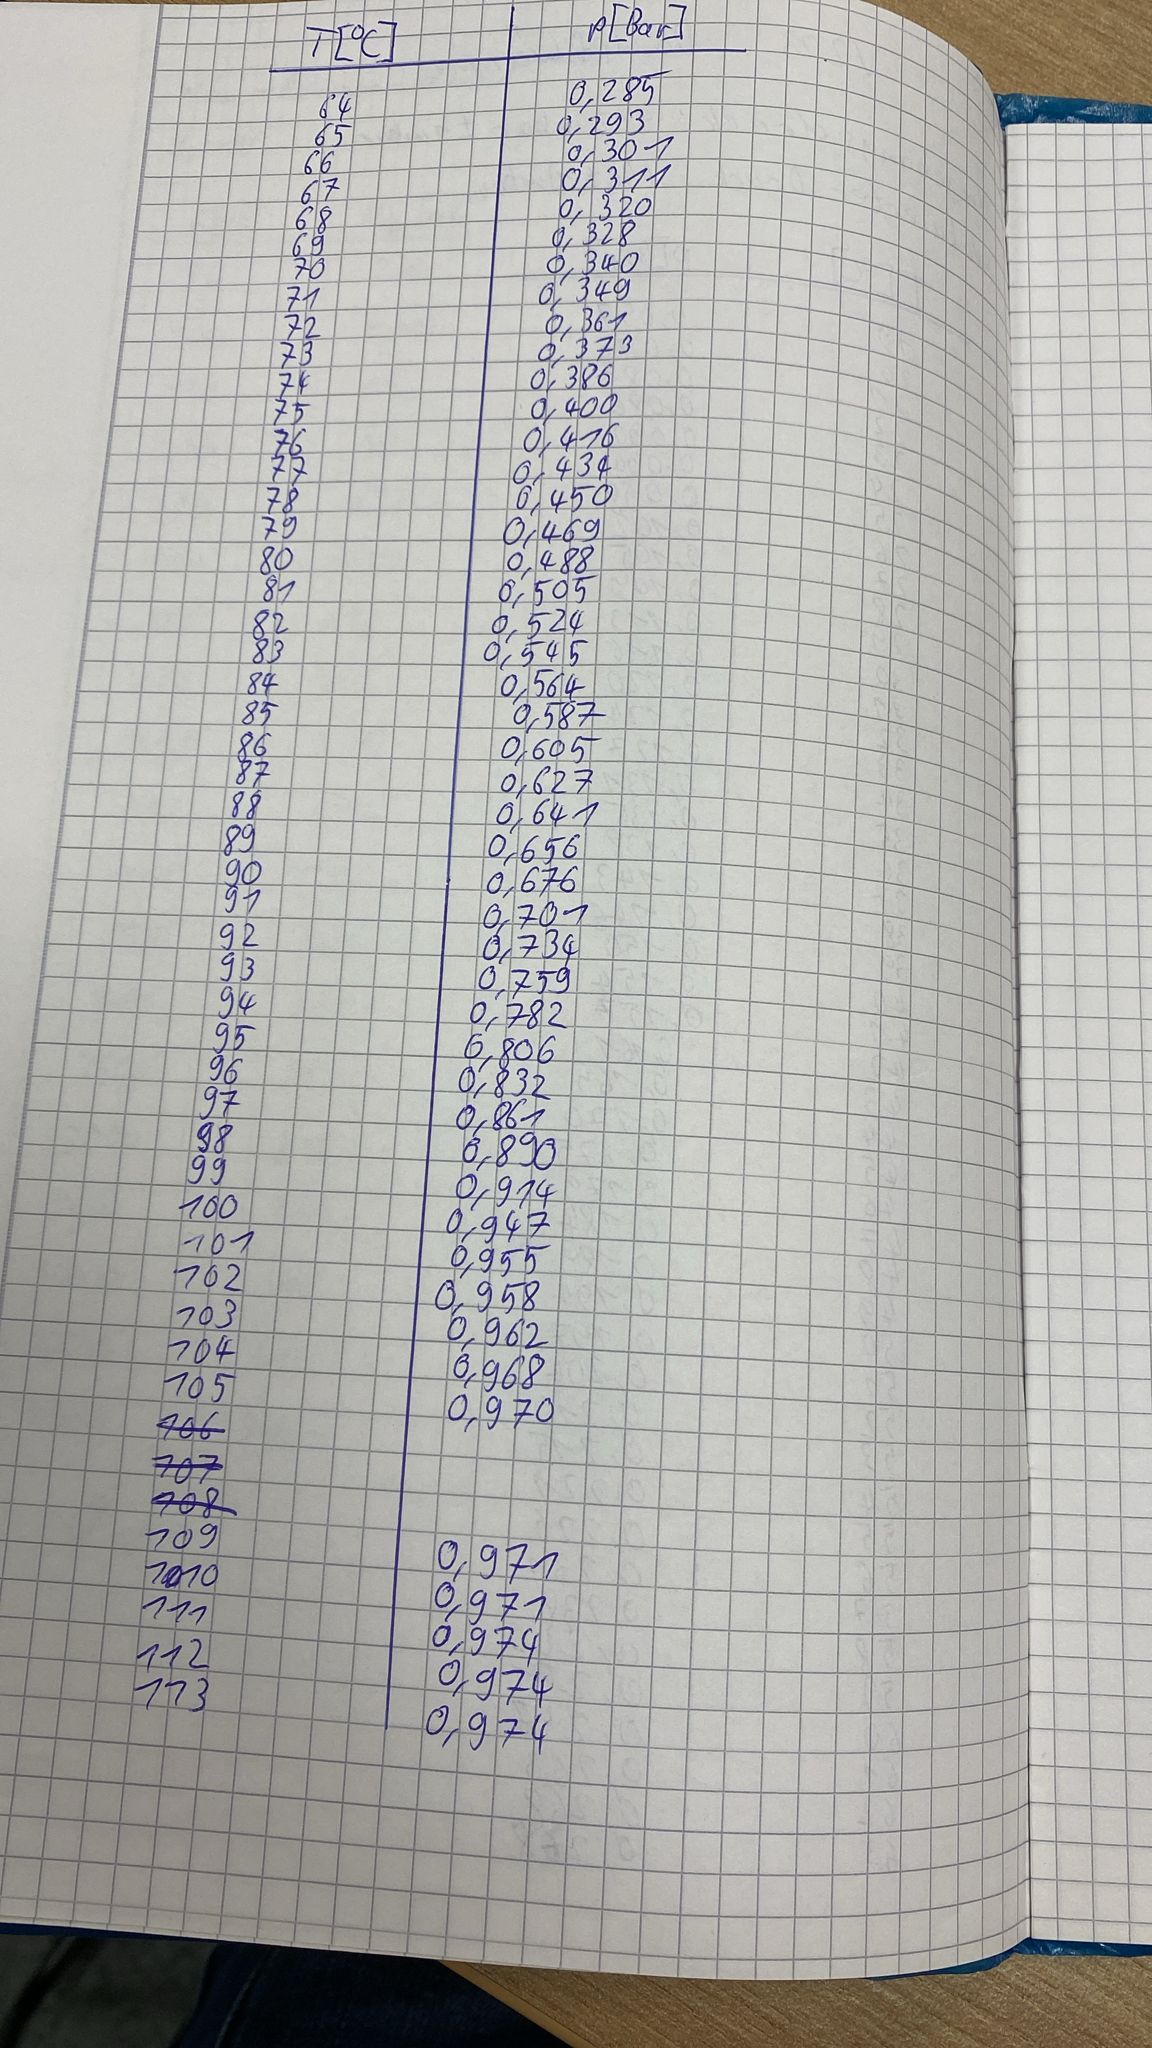 T[°C] p[Bar]
64 0,285
65 0,293
66 0,301
67 0,311
68 0,320
69 0,328
70 0,340
71 0,349
72 0,361
73 0,373
74 0,386
75 0,400
76 0,416
77 0,434
78 0,450
79 0,469
80 0,488
81 0,505
82 0,524
83 0,545
84 0,564
85 0,587
86 0,605
87 0,627
88 0,641
89 0,656
90 0,676
91 0,701
92 0,734
93 0,759
94 0,782
95 0,806
96 0,832
97 0,861
98 0,890
99 0,914
100 0,947
101 0,955
102 0,958
103 0,962
104 0,968
105 0,970
106
107
108
109 0,971
1010 0,971
111 0,974
112 0,974
113 0,974